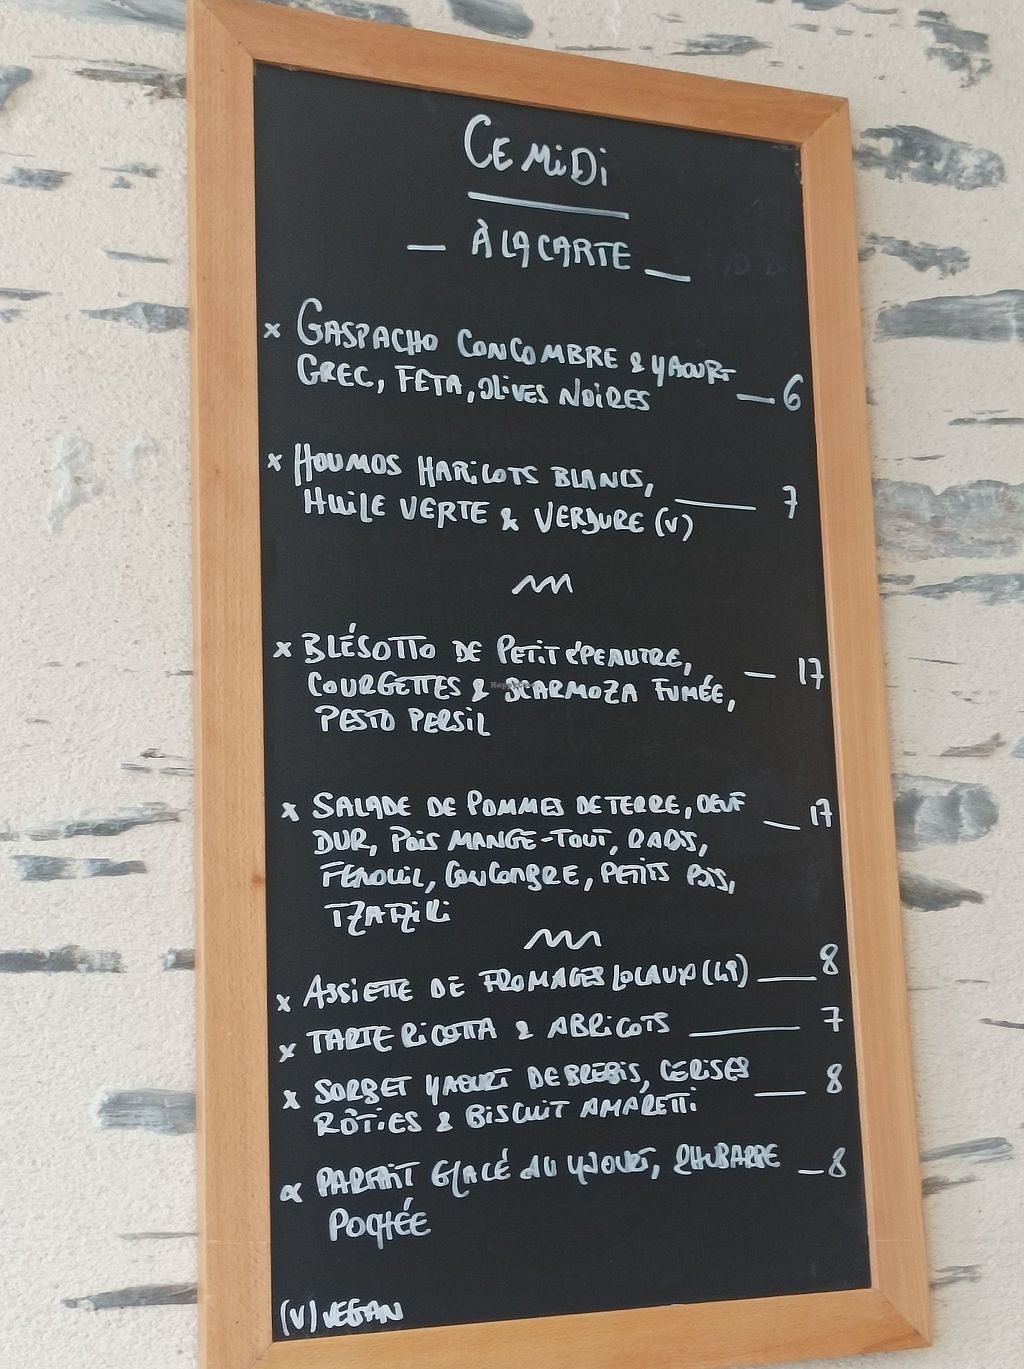 CE MiDi
À LA CARTE
x GASPACHO CONCOMBRE & YAOURT
GREC, FETA, OLIVES NOIRES 6
x HOUMOS HARICOTS BLANCS,
HUILE VERTE & VERDURE (V) 7
x BLÉSOTTO DE PETIT ÉPEAUTRE,
COURGETTES & SCARMOZA FUMÉE, 17
PESTO PERSIL
x SALADE DE POMMES DE TERRE, OEUF 17
DUR, POIS MANGE-TOUT, RADIS,
FENOUIL, CONCOMBRE, PETITS POIS,
TZATZIKI
x ASSIETTE DE FROMAGES LOCAUX 8
x TARTE RICOTTA & ABRICOTS 7
x SORBET YAOURT DE BREBIS, CERISES
RÔTIES & BISCUIT AMARETTI 8
x PARFAIT GLACÉ AU YAOURT, RHUBARBE 8
POCHÉE
(V) VEGAN